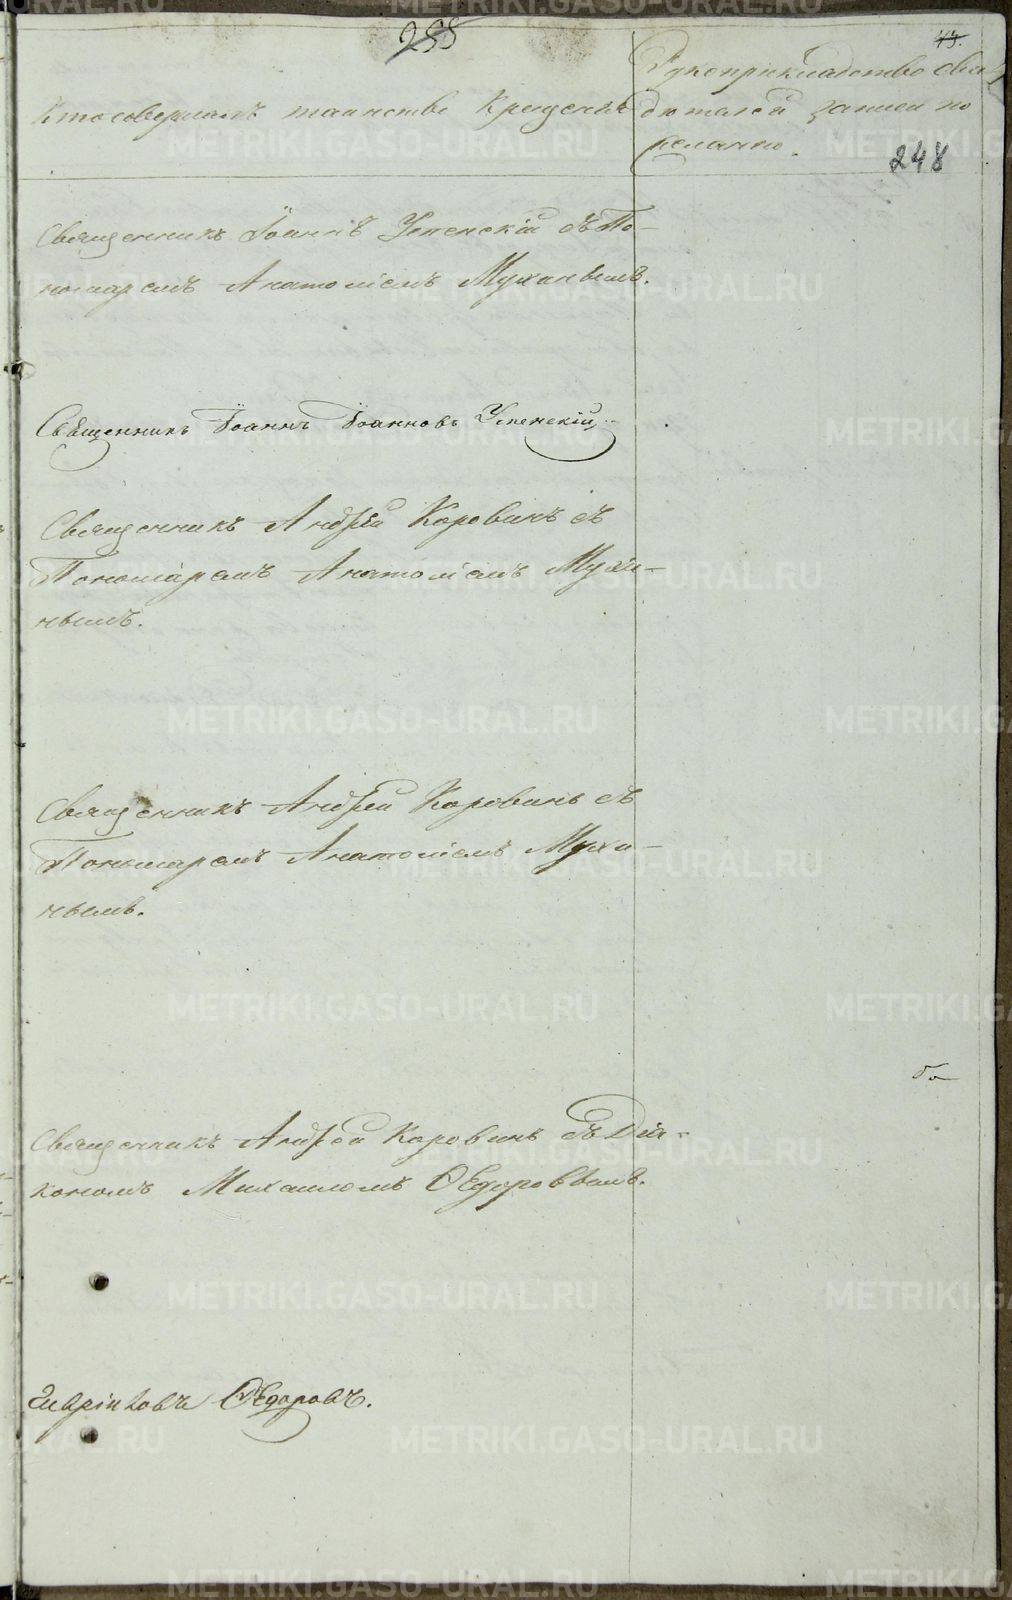 255
43.
Кто совершалъ таинство крещенія
Рукоприкладство сви
дѣтелей записи по
желанію.
248
Священникъ Іоаннъ Успенскій съ По-
номаремъ Анатоліемъ Мухинымъ.
Священникъ Іоаннъ Іоанновъ Успенскій
Священникъ Андрей Коровинъ съ
Пономаремъ Анатоліемъ Мухи-
нымъ.
Священникъ Андрей Коровинъ съ
Пономаремъ Анатоліемъ Мухи-
нымъ.
Священникъ Андрей Коровинъ съ Діа-
кономъ Михаиломъ Ѳедоровымъ.
Ѳедоровъ.
METRIKI.GASO-URAL.RU